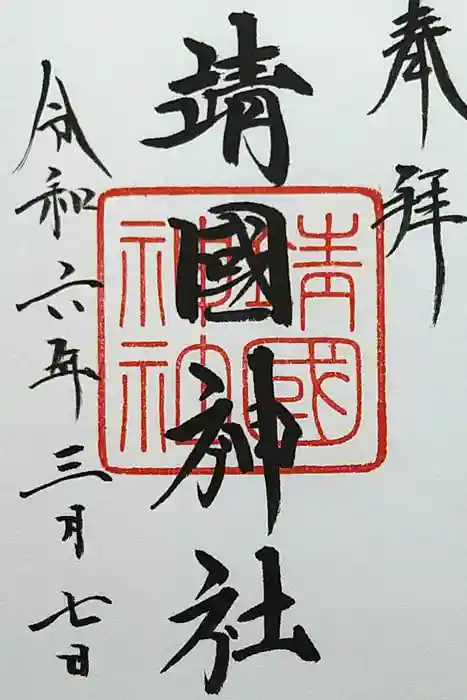 奉拝
靖國神社
靖國
神社
令和六年三月七日